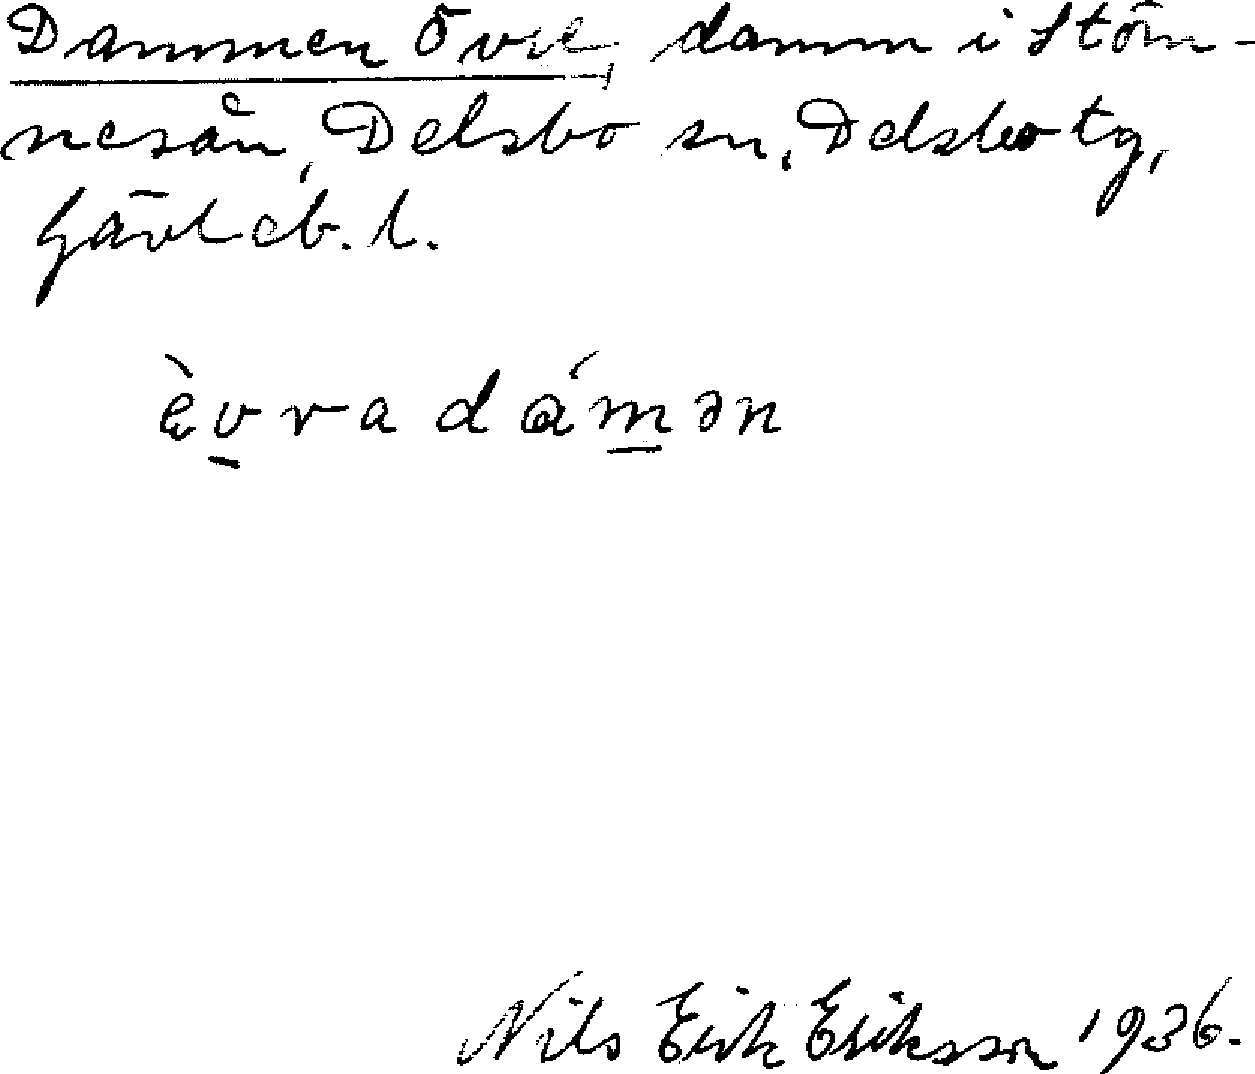 Dammen Övre, damm i Stöm-
nesån, Delsbo sn, Delsbo tg,
Gävleb. l.
è̜v̲radám̲ən
Nils Erik Eriksson 1936.